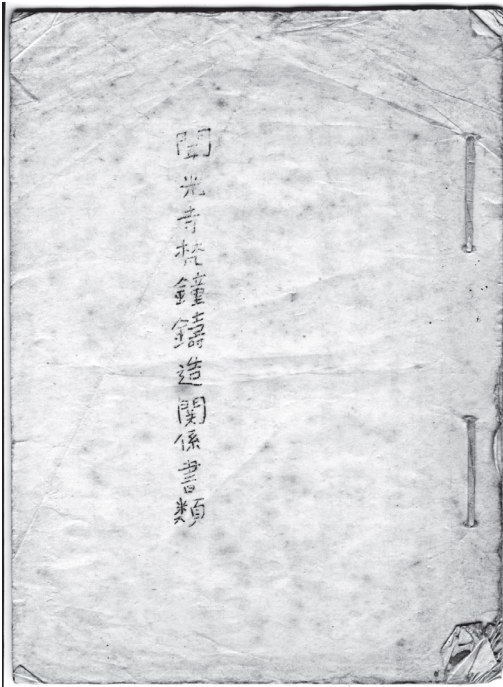 聞光寺梵鐘鑄造関係書類